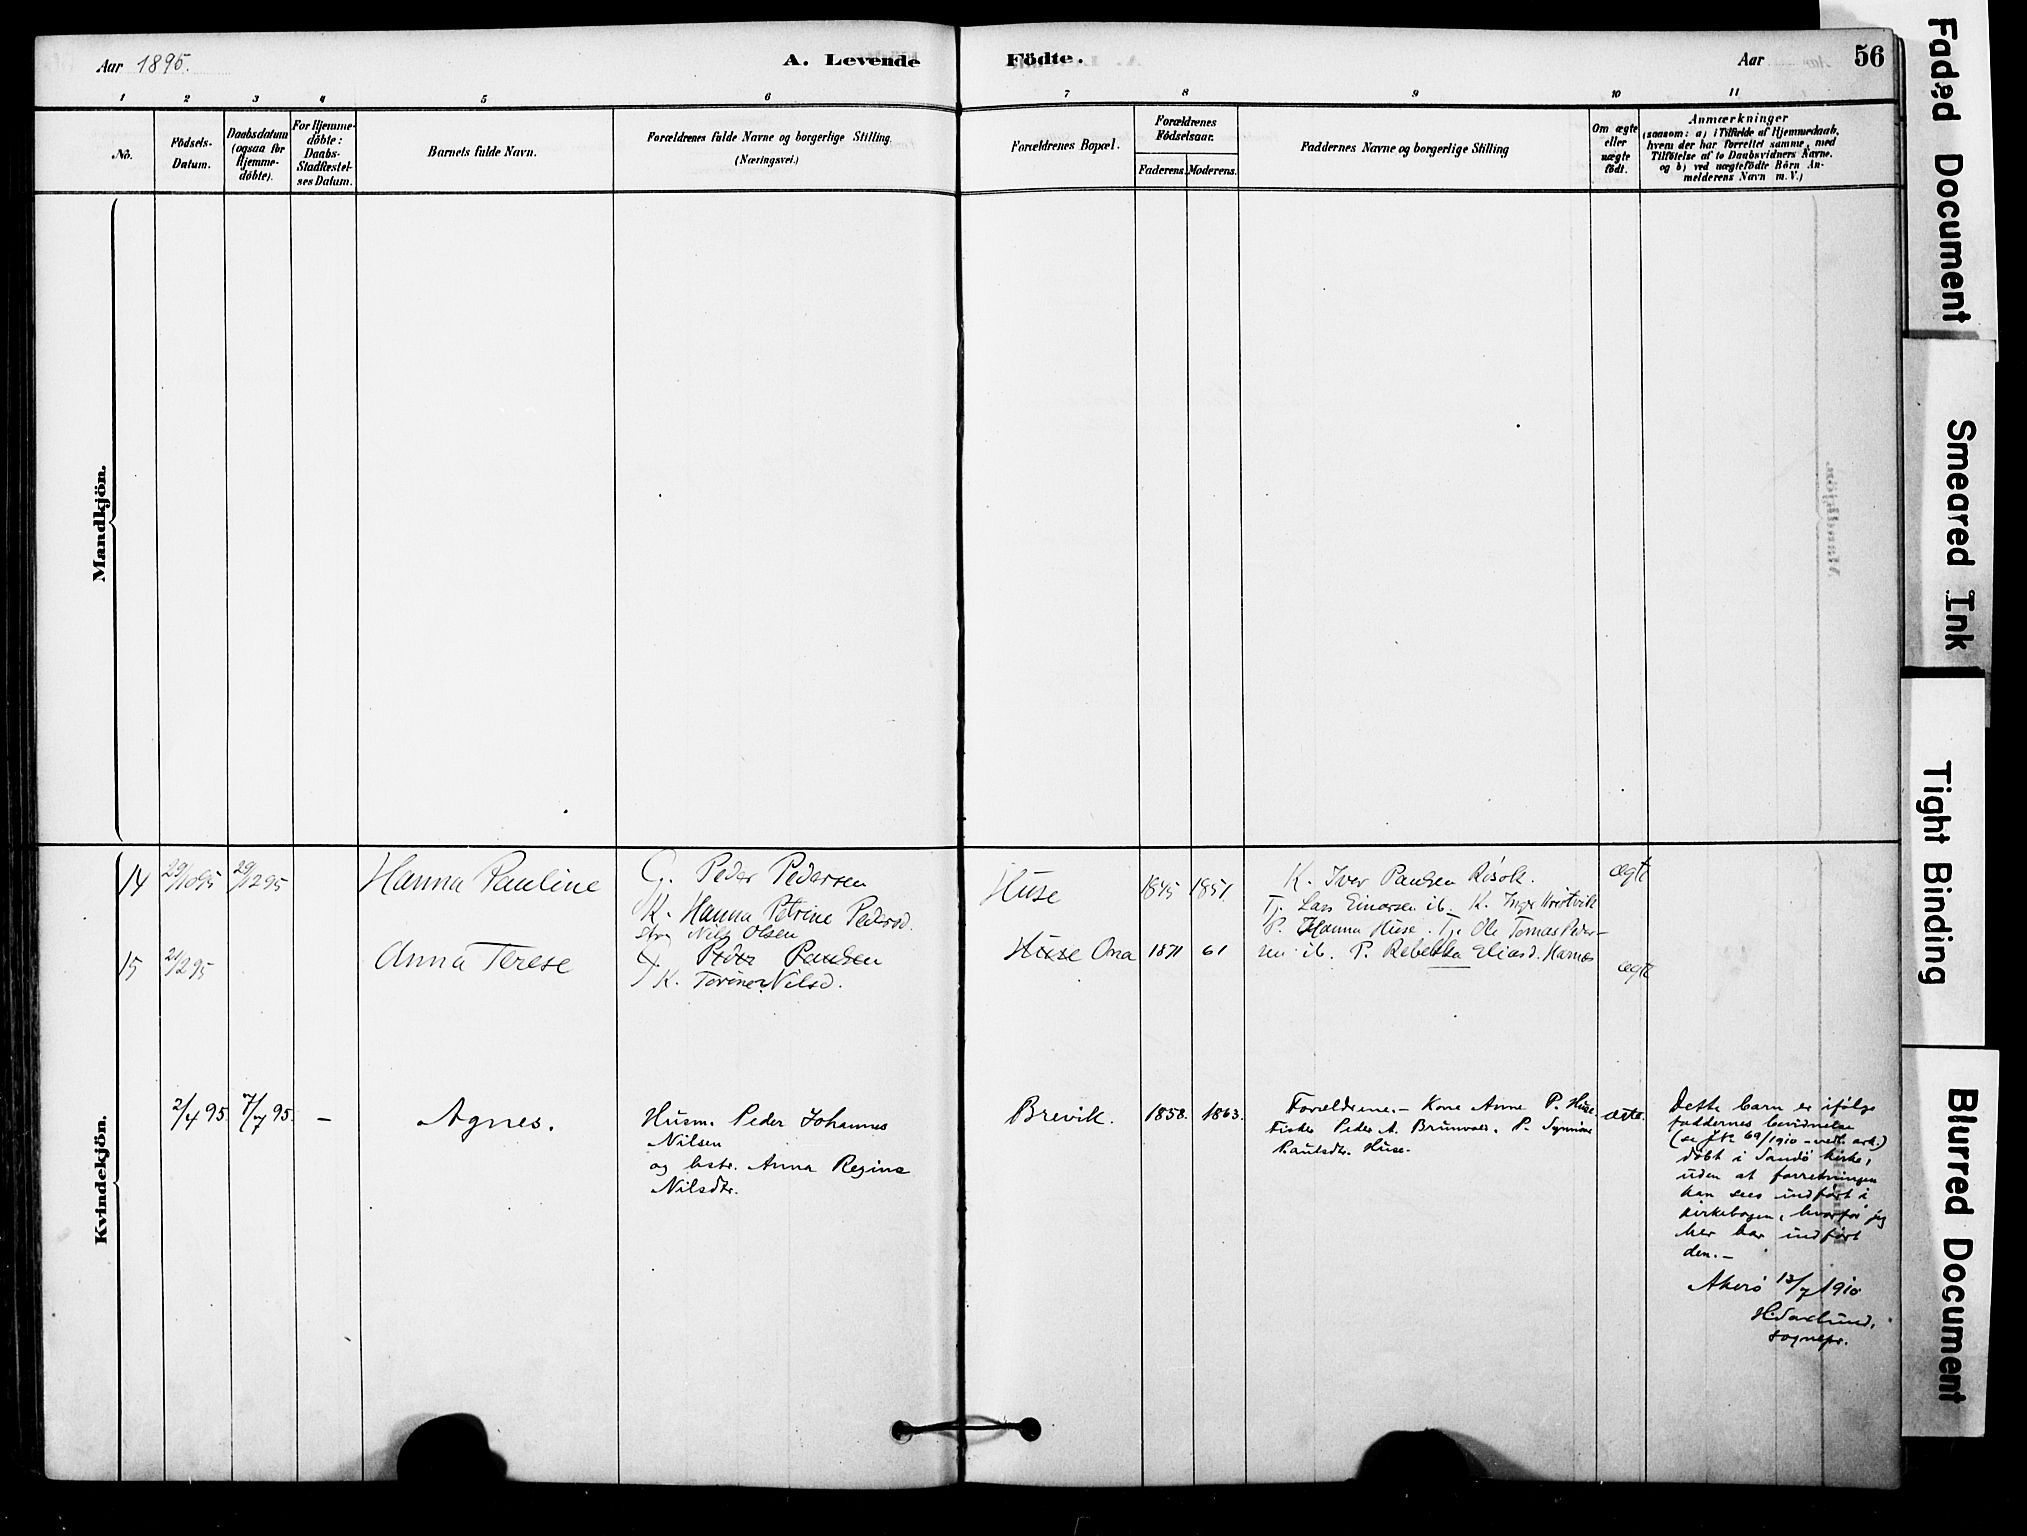 Aar 1895.
A. Levende
Födte.
Aar
56
1
2
3
4
5
6
7
8
9
10
11
No.
Födsels-
Datum.
Daabsdatum
(ogsaa for
Hjemme-
döbte).
For Hjemme-
döbte:
Daabs-
Stadfæstel-
ses Datum.
Barnets fulde Navn.
Forældrenes fulde Navne og borgerlige Stilling
(Næringsvei.)
Forældrenes Bopæl.
Forældrenes
Födselsaar.
Faderens.
Moderens.
Faddernes Navne og borgerlige Stilling
Om ægte
eller
uægte
födt.
Anmærkninger
(saasom: a) i Tilfælde af Hjemmedaab,
hvem der har forrettet samme, med
Tilföielse af to Daabsvidners Navne.
og b) ved uægtefödte Börn An-
melderens Navn m. V.)
Mandkjön.
Kvindekjön.
14
29/1095
29/1295
Hanna Pauline
G. Peder Pedersen
K. Hanna Petrine Pedersd.
Huse
1845
1851
K. Iver Paulsen Risøk.
Tj. Lars Einarsen ib. K. Inger
P. Hanna Huse. Tj. Ole Tomas Peder-
sen ib. P. Rebekka Eliasd. Harnes
ægte
15
21/295
Anna Terese
Strg Nils Olsen
G. Peder Paulsen
K. Nilsd.
Huse Ona
1871
61
ægte
2/4 95.
7/7 95.
–
Agnes.
Husm. Peder Johannes
Nilsen
og hstr. Anna Regine
Nilsdtr.
Brevik.
1858.
1863.
Forældrene. – Kone Anne P. Huse.
Fisker Peder A. Brunvold. P. Synnøve
Paulsdtr. Huse.
ægte.
Dette barn er ifølge
faddernes bevidnelse
(se J.№ 69/1910 – vedl. ark.)
døbt i Sandø kirke,
uden at forretningen
kan sees indført i
kirkebogen, hvorfor jeg
her har indført
den. –
Akerø 13/7 1910
H. Saxlund,
sognepr.
Faded Document
Smeared Ink
Tight Binding
Blurred Document